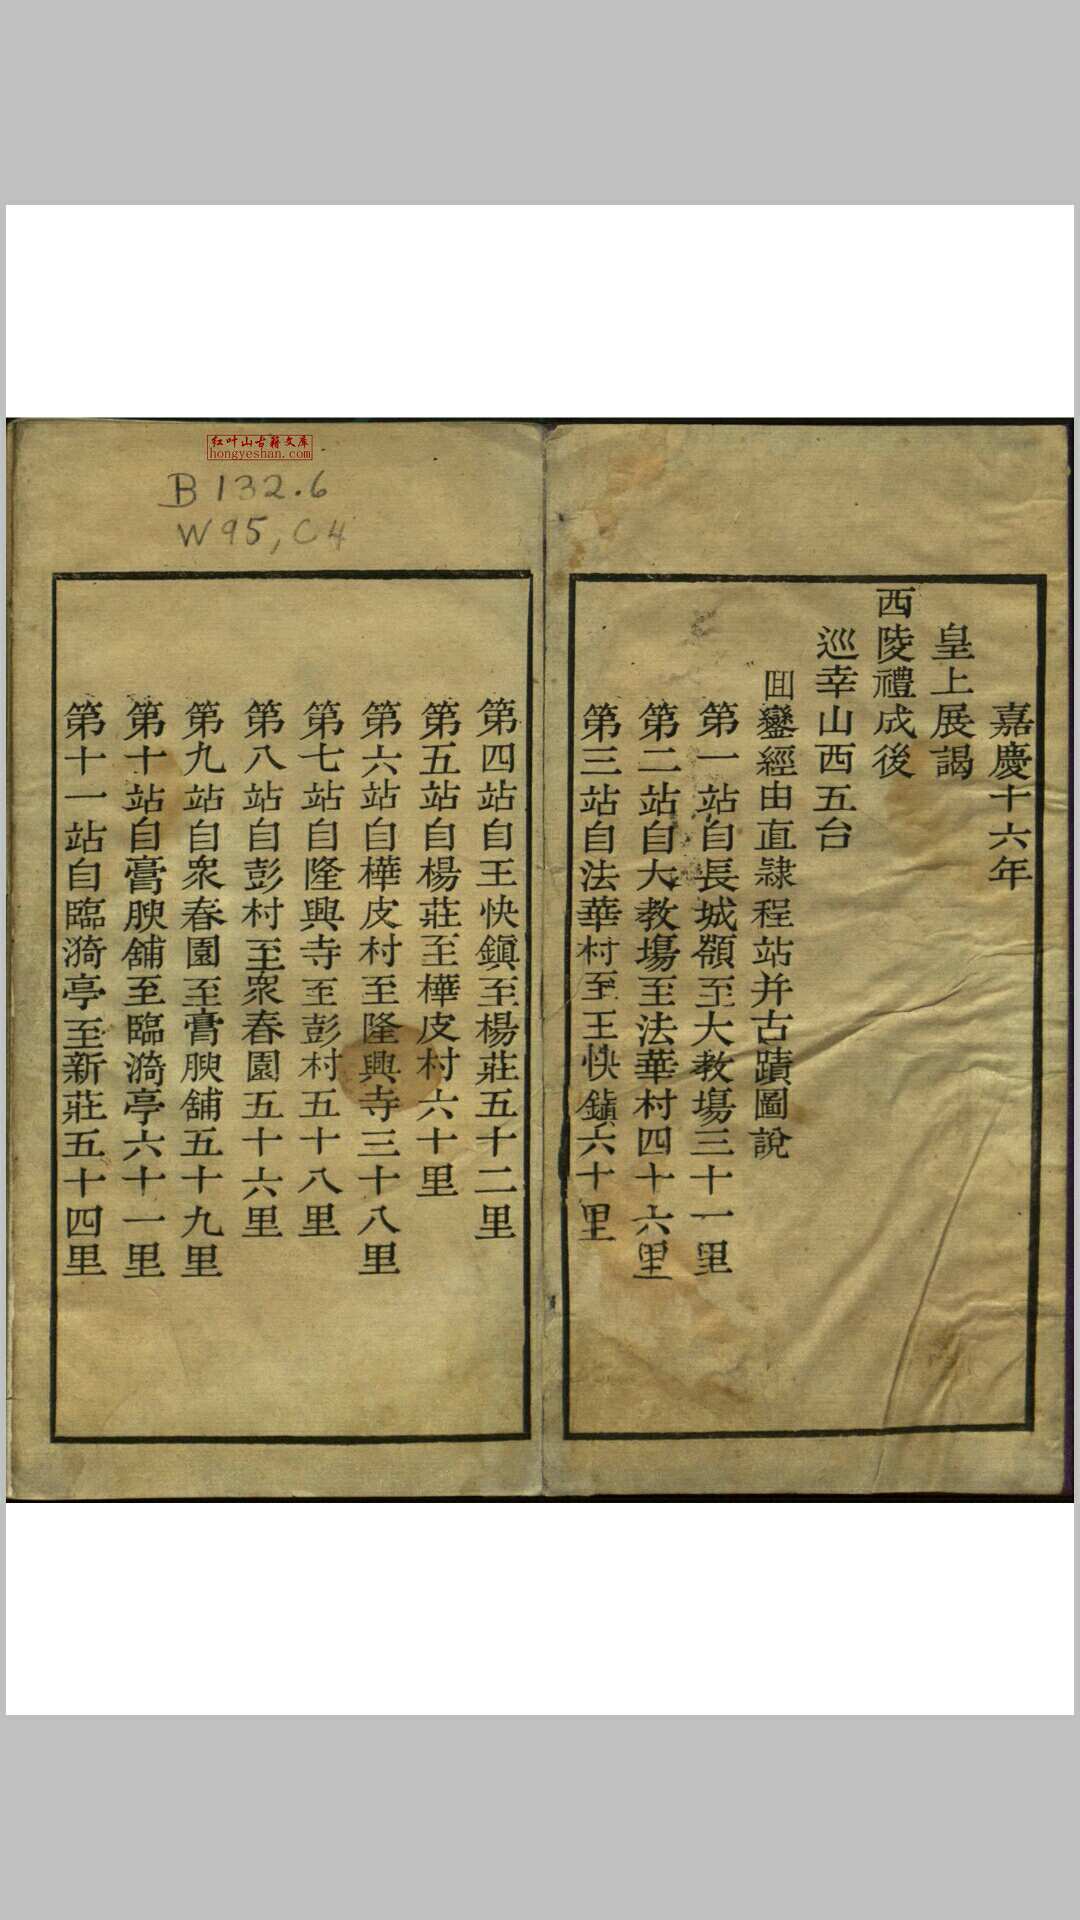 嘉慶十六年
皇上展謁
西陵禮成後
巡幸山西五台
囬鑾經由直隸程站并古蹟圖說
第一站自長城嶺至大教塲三十一里
第二站自大教塲至法華村四十六里
第三站自法華村至王快鎮六十里
第四站自王快鎮至楊莊五十二里
第五站自楊莊至樺皮村六十里
第六站自樺皮村至隆興寺三十八里
第七站自隆興寺至彭村五十八里
第八站自彭村至眾春園五十六里
第九站自眾春園至膏腴舖五十九里
第十站自膏腴舖至臨漪亭六十一里
第十一站自臨漪亭至新莊五十四里
红叶山古籍文库
hongyeshan.com
B132.6
W95,C4